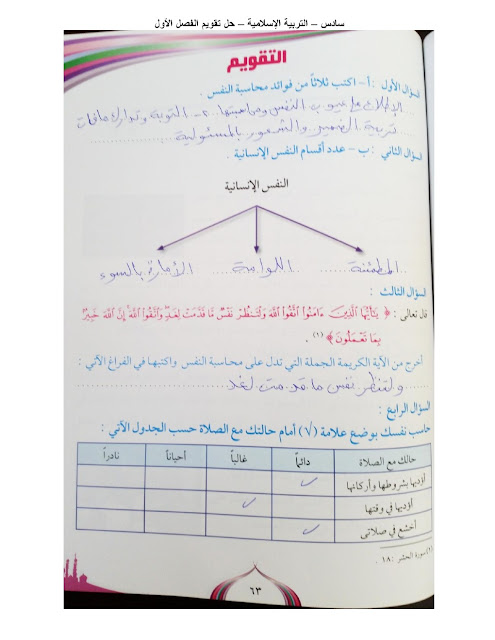 سادس – التربية الإسلامية – حل تقويم الفصل الأول
التقويم
السؤال الأول : أ- اكتب ثلاثاً من فوائد محاسبة النفس .
الإطلاع على عيوب النفس ومحاسبتها ٢- التوبة وتدارك ما فات
تربية الضمير والشعور بالمسئولية
السؤال الثاني : ب - عدد أقسام النفس الإنسانية .
النفس الإنسانية
المطمئنة اللوامة الأمارة بالسوء
السؤال الثالث :
قال تعالى : ﴿ يَٰٓأَيُّهَا ٱلَّذِينَ ءَامَنُوا۟ ٱتَّقُوا۟ ٱللَّهَ وَلْتَنظُرْ نَفْسٌ مَّا قَدَّمَتْ لِغَدٍ وَٱتَّقُوا۟ ٱللَّهَ إِنَّ ٱللَّهَ خَبِيرٌۢ
بِمَا تَعْمَلُونَ ﴾ (١) .
أخرج من الآية الكريمة الجملة التي تدل على محاسبة النفس واكتبها في الفراغ الآتي :
ولتنظر نفس ما قدمت لغد
السؤال الرابع :
حاسب نفسك بوضع علامة (√) أمام حالتك مع الصلاة حسب الجدول الآتي :
حالك مع الصلاة دائماً غالباً أحياناً نادراً
أؤديها بشروطها وأركانها ✓
أؤديها في وقتها ✓
أخشع في صلاتي ✓
(١) سورة الحشر : ١٨ .
٦٣